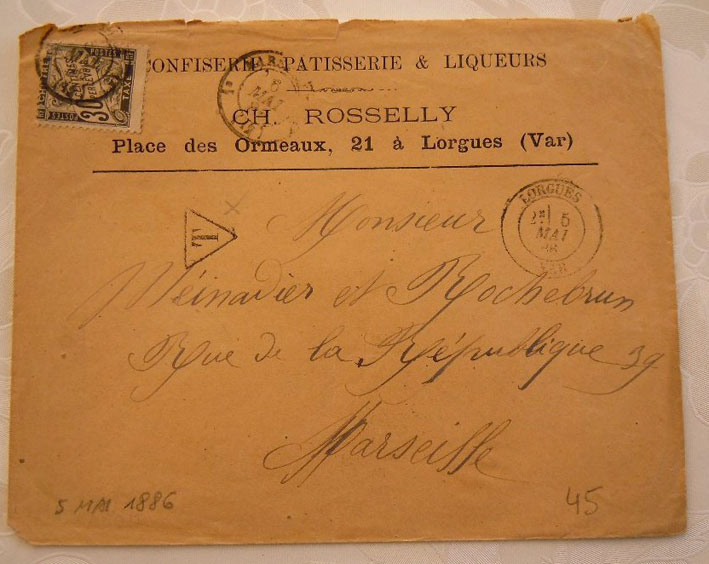 CONFISERIE, PATISSERIE & LIQUEURS
CH. ROSSELLY
Place des Ormeaux, 21 à Lorgues (Var)
POSTES
30
TAXE
6
MAI
LORGUES
5
MAI
86
VAR
T
Monsieur
Méinadier et Rochebrun
Rue de la République 39
Marseille
5 MAI 1886
45